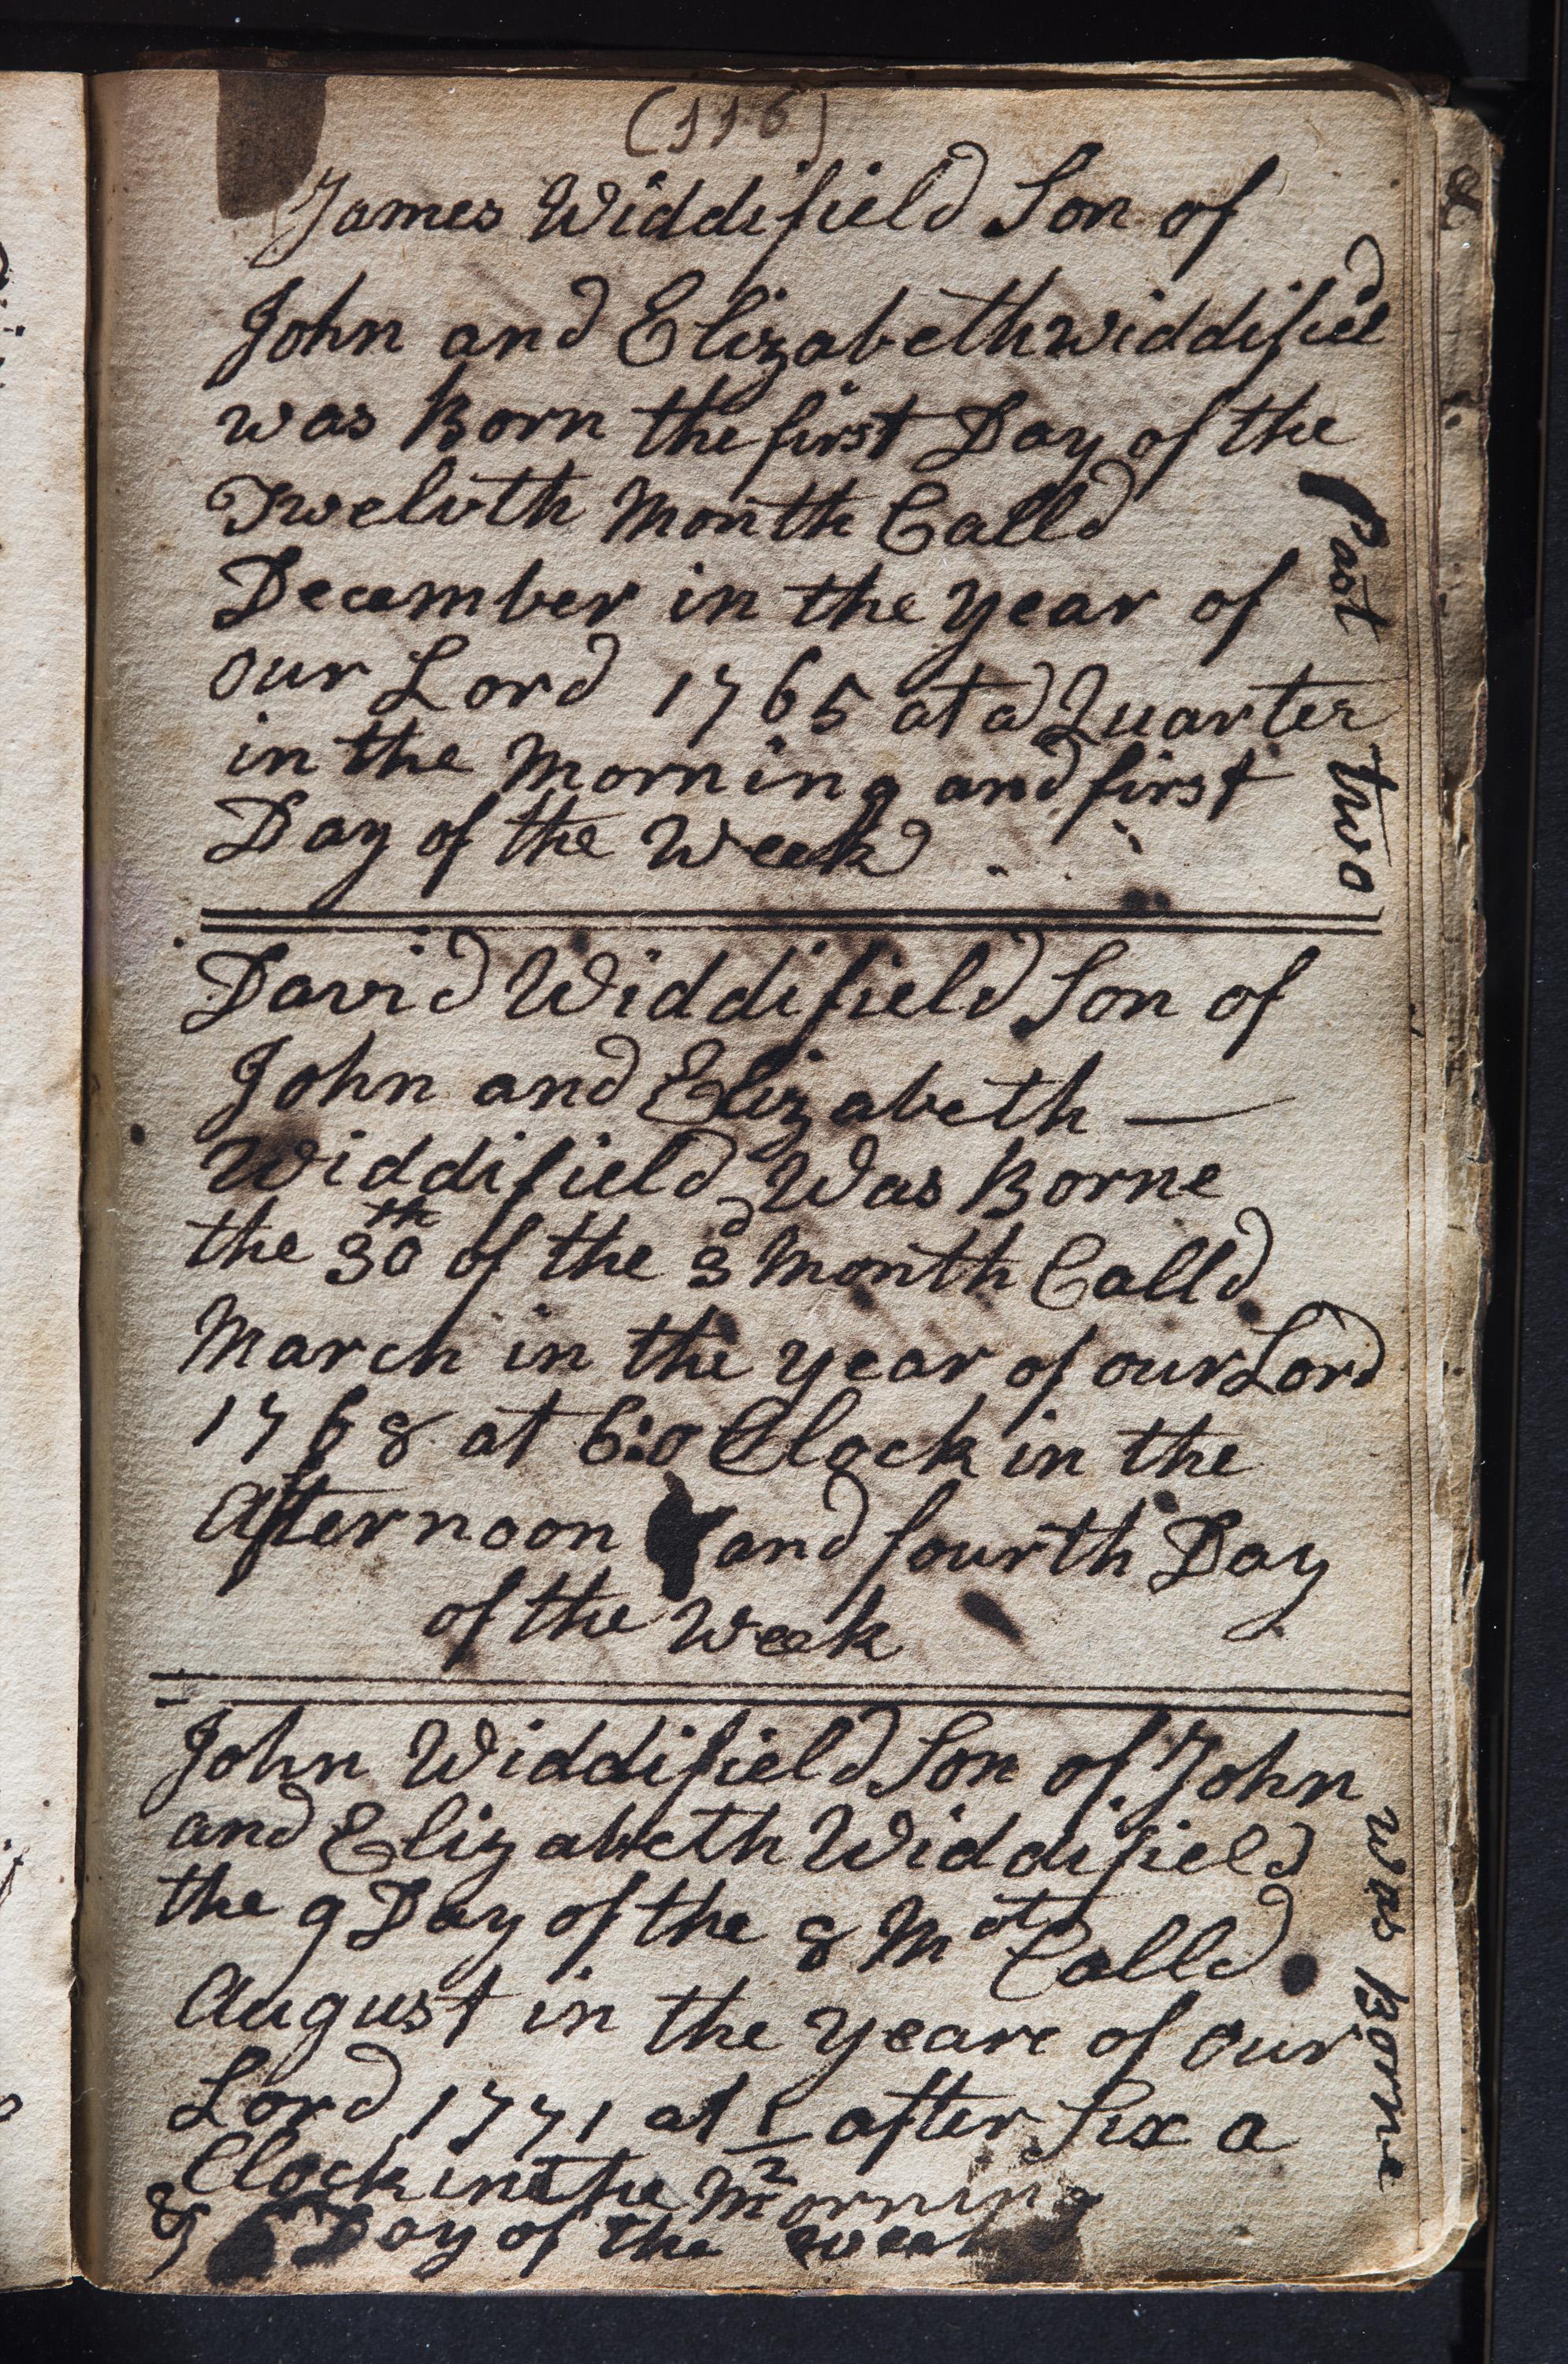 (116)
James Widdifield Son of
John and Elizabeth Widdifield
was Born the first Day of the
Twelvth Month Calld
December in the year of
our Lord 1765 at a Quarter
past two
in the Morning and first
Day of the Week
David Widdifield Son of
John and Elizabeth —
Widdifield Was Borne
the 30th of the 3d Month Calld
March in the year of our Lord
1768 at 6:o Clock in the
Afternoon and fourth Day
of the Week
John Widdifield Son of John
and Elizabeth Widdifield
was Borne
the 9 Day of the 8 Mot Calld
August in the yeare of our
Lord 1771 at 1/2 after Six a
Clock in the Morning
& Day of the week